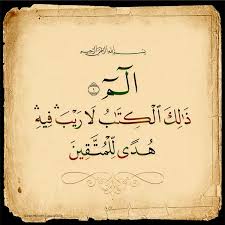 بِسْمِ اللَّهِ الرَّحْمَٰنِ الرَّحِيمِ
الٓمٓ ١
ذَٰلِكَ ٱلْكِتَٰبُ لَا رَيْبَ ۛ فِيهِ ۛ
هُدًى لِّلْمُتَّقِينَ